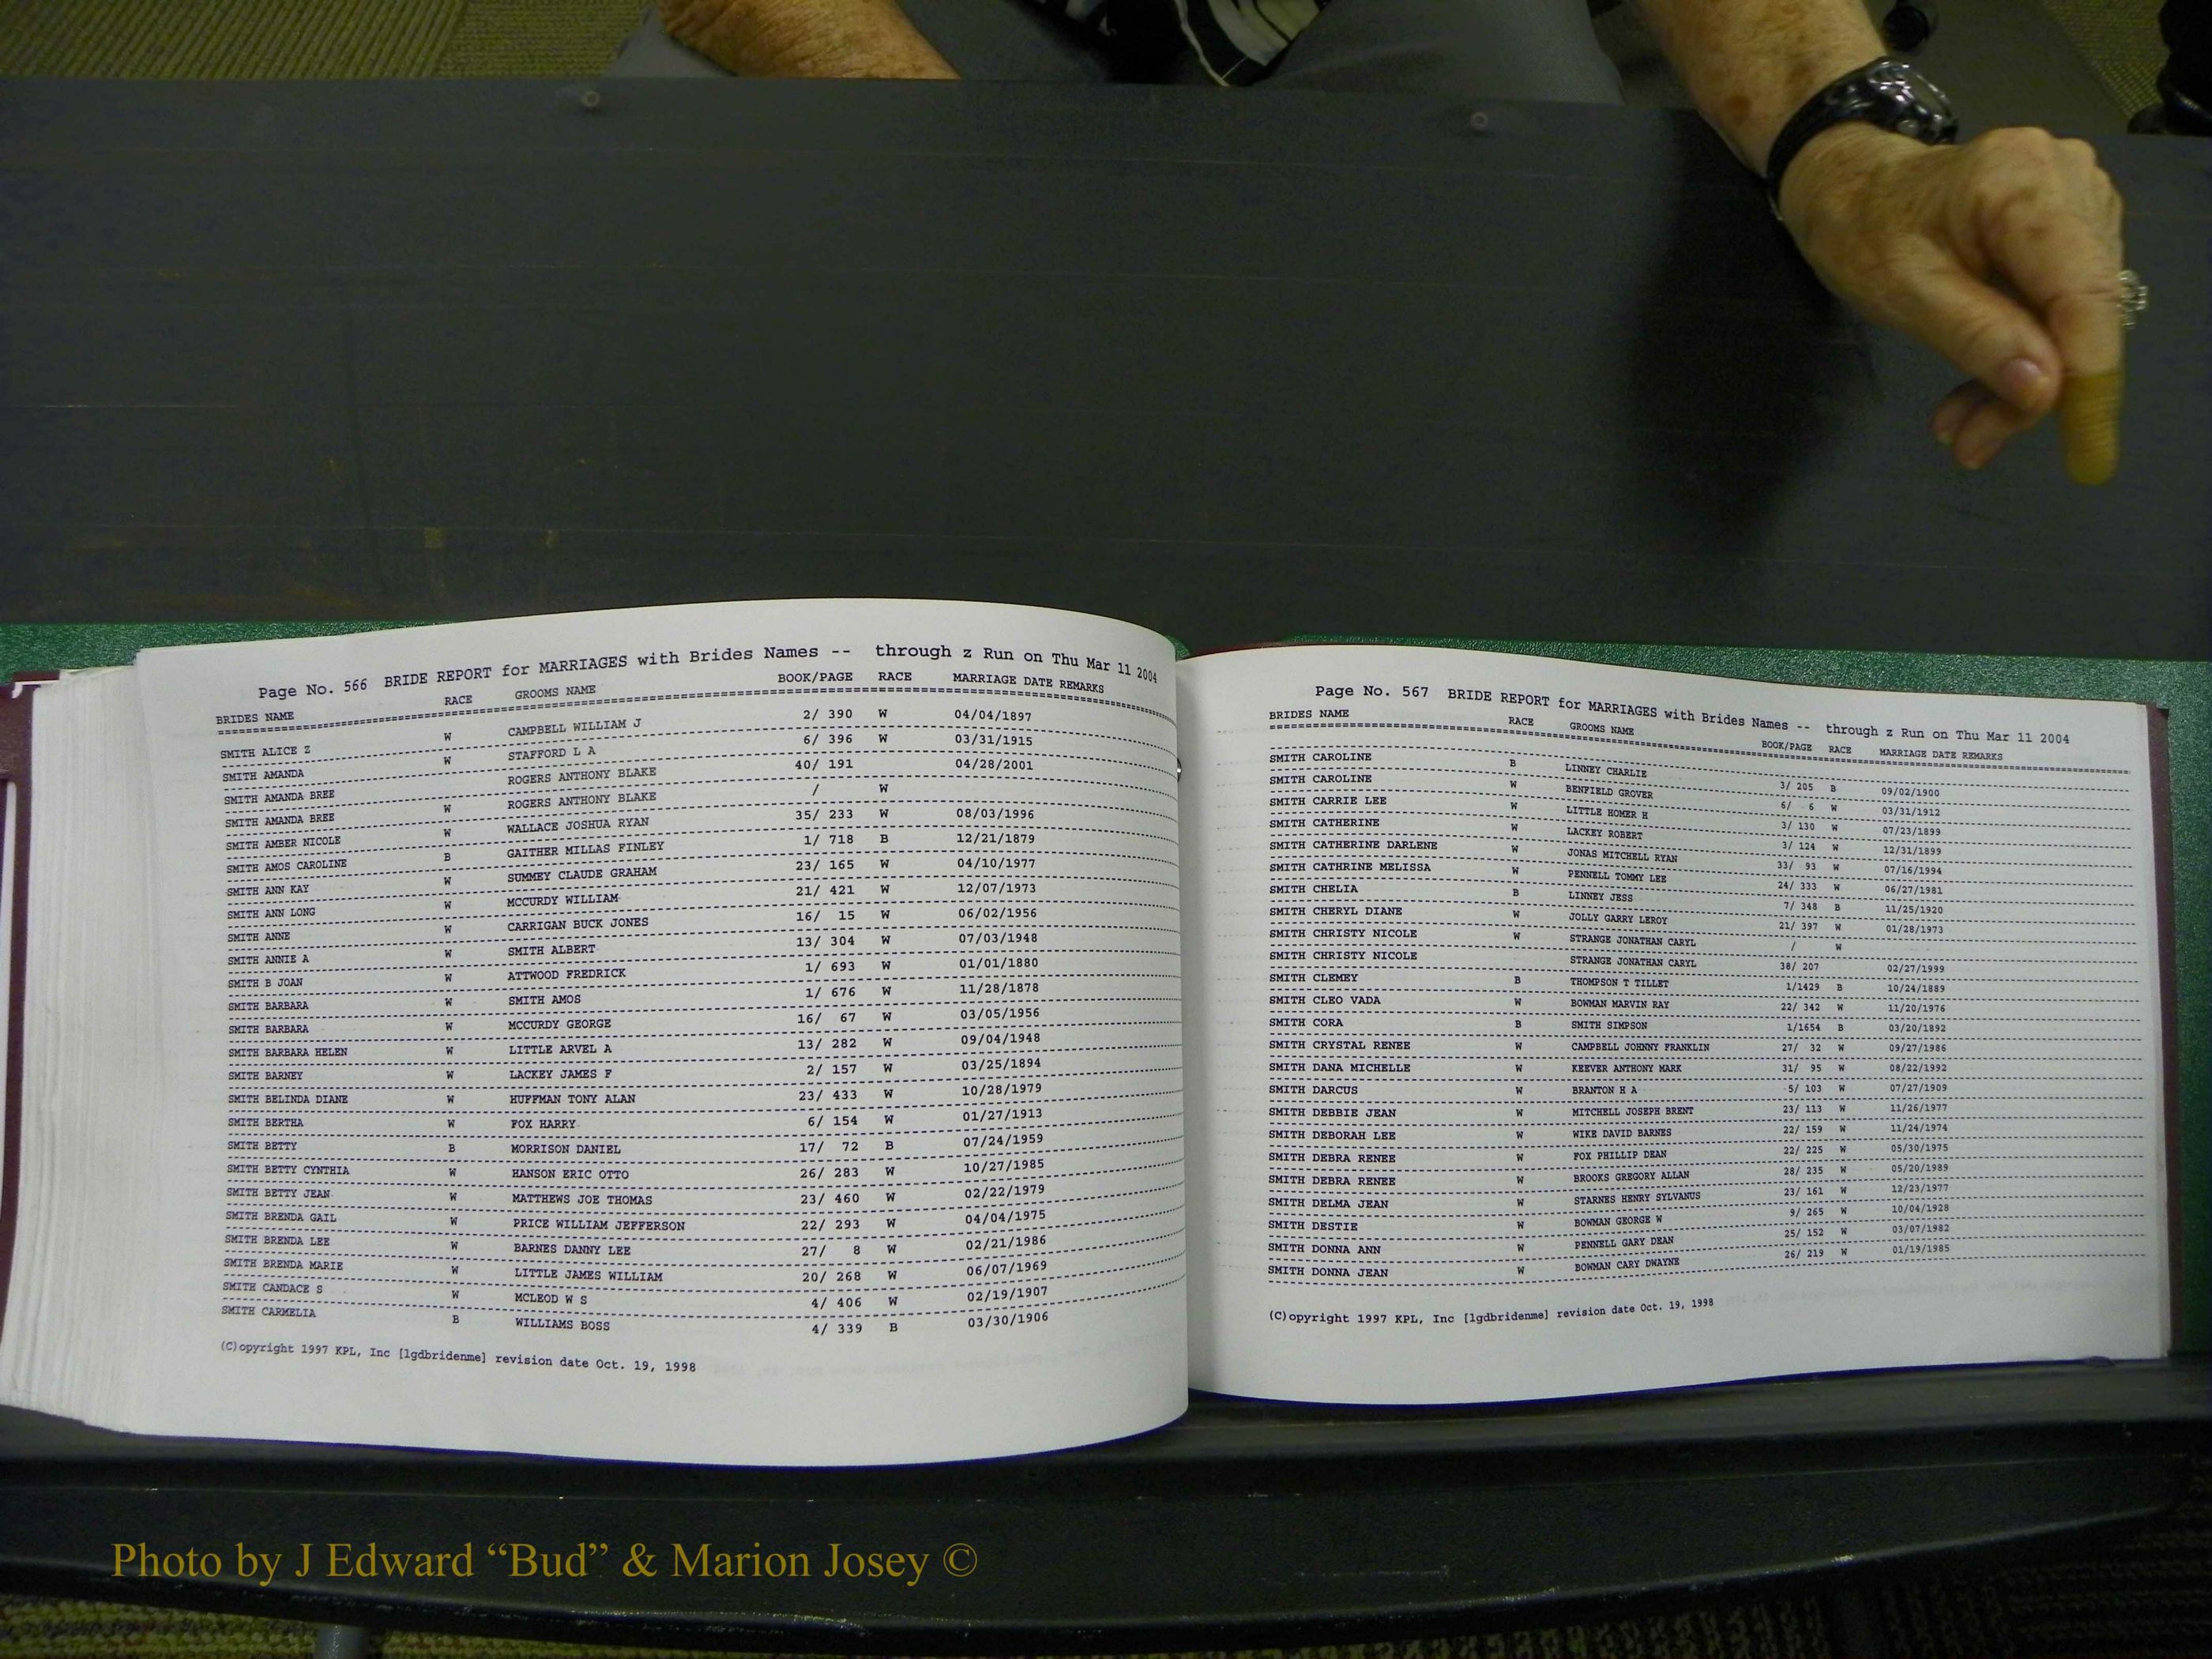 Page No. 566 BRIDE REPORT for MARRIAGES with Brides Names -- through z Run on Thu Mar 11 2004
BRIDES NAME RACE GROOMS NAME BOOK/PAGE RACE MARRIAGE DATE REMARKS
SMITH ALICE Z W CAMPBELL WILLIAM J 2/ 390 W 04/04/1897
SMITH AMANDA W STAFFORD L A 6/ 396 W 03/31/1915
SMITH AMANDA BREE ROGERS ANTHONY BLAKE 40/ 191 04/28/2001
SMITH AMANDA BREE W ROGERS ANTHONY BLAKE / W
SMITH AMBER NICOLE W WALLACE JOSHUA RYAN 35/ 233 W 08/03/1996
SMITH AMOS CAROLINE B GAITHER MILLAS FINLEY 1/ 718 B 12/21/1879
SMITH ANN KAY W SUMMEY CLAUDE GRAHAM 23/ 165 W 04/10/1977
SMITH ANN LONG W MCCURDY WILLIAM 21/ 421 W 12/07/1973
SMITH ANNE W CARRIGAN BUCK JONES 16/ 15 W 06/02/1956
SMITH ANNIE A W SMITH ALBERT 13/ 304 W 07/03/1948
SMITH B JOAN W ATTWOOD FREDRICK 1/ 693 W 01/01/1880
SMITH BARBARA W SMITH AMOS 1/ 676 W 11/28/1878
SMITH BARBARA W MCCURDY GEORGE 16/ 67 W 03/05/1956
SMITH BARBARA HELEN W LITTLE ARVEL A 13/ 282 W 09/04/1948
SMITH BARNEY W LACKEY JAMES F 2/ 157 W 03/25/1894
SMITH BELINDA DIANE W HUFFMAN TONY ALAN 23/ 433 W 10/28/1979
SMITH BERTHA W FOX HARRY 6/ 154 W 01/27/1913
SMITH BETTY B MORRISON DANIEL 17/ 72 B 07/24/1959
SMITH BETTY CYNTHIA W HANSON ERIC OTTO 26/ 283 W 10/27/1985
SMITH BETTY JEAN W MATTHEWS JOE THOMAS 23/ 460 W 02/22/1979
SMITH BRENDA GAIL W PRICE WILLIAM JEFFERSON 22/ 293 W 04/04/1975
SMITH BRENDA LEE W BARNES DANNY LEE 27/ 8 W 02/21/1986
SMITH BRENDA MARIE W LITTLE JAMES WILLIAM 20/ 268 W 06/07/1969
SMITH CANDACE S W MCLEOD W S 4/ 406 W 02/19/1907
SMITH CARMELIA B WILLIAMS BOSS 4/ 339 B 03/30/1906
(C)opyright 1997 KPL, Inc [lgdbridenme] revision date Oct. 19, 1998
Page No. 567 BRIDE REPORT for MARRIAGES with Brides Names -- through z Run on Thu Mar 11 2004
BRIDES NAME RACE GROOMS NAME BOOK/PAGE RACE MARRIAGE DATE REMARKS
SMITH CAROLINE B LINNEY CHARLIE 3/ 205 B 09/02/1900
SMITH CAROLINE W BENFIELD GROVER 6/ 6 W 03/31/1912
SMITH CARRIE LEE W LITTLE HOMER H 3/ 130 W 07/23/1899
SMITH CATHERINE W LACKEY ROBERT 3/ 124 W 12/31/1899
SMITH CATHERINE DARLENE W JONAS MITCHELL RYAN 33/ 93 W 07/16/1994
SMITH CATHRINE MELISSA W PENNELL TOMMY LEE 24/ 333 W 06/27/1981
SMITH CHELIA B LINNEY JESS 7/ 348 B 11/25/1920
SMITH CHERYL DIANE W JOLLY GARRY LEROY 21/ 397 W 01/28/1973
SMITH CHRISTY NICOLE W STRANGE JONATHAN CARYL / W
SMITH CHRISTY NICOLE STRANGE JONATHAN CARYL 38/ 207 02/27/1999
SMITH CLEMEY B THOMPSON T TILLET 1/1429 B 10/24/1889
SMITH CLEO VADA W BOWMAN MARVIN RAY 22/ 342 W 11/20/1976
SMITH CORA B SMITH SIMPSON 1/1654 B 03/20/1892
SMITH CRYSTAL RENEE W CAMPBELL JOHNNY FRANKLIN 27/ 32 W 09/27/1986
SMITH DANA MICHELLE W KEEVER ANTHONY MARK 31/ 95 W 08/22/1992
SMITH DARCUS W BRANTON H A 5/ 103 W 07/27/1909
SMITH DEBBIE JEAN W MITCHELL JOSEPH BRENT 23/ 113 W 11/26/1977
SMITH DEBORAH LEE W WIKE DAVID BARNES 22/ 159 W 11/24/1974
SMITH DEBRA RENEE W FOX PHILLIP DEAN 22/ 225 W 05/30/1975
SMITH DEBRA RENEE W BROOKS GREGORY ALLAN 28/ 235 W 05/20/1989
SMITH DELMA JEAN W STARNES HENRY SYLVANUS 23/ 161 W 12/23/1977
SMITH DESTIE W BOWMAN GEORGE W 9/ 265 W 10/04/1928
SMITH DONNA ANN W PENNELL GARY DEAN 25/ 152 W 03/07/1982
SMITH DONNA JEAN W BOWMAN CARY DWAYNE 26/ 219 W 01/19/1985
(C)opyright 1997 KPL, Inc [lgdbridenme] revision date Oct. 19, 1998
Photo by J Edward “Bud” & Marion Josey ©